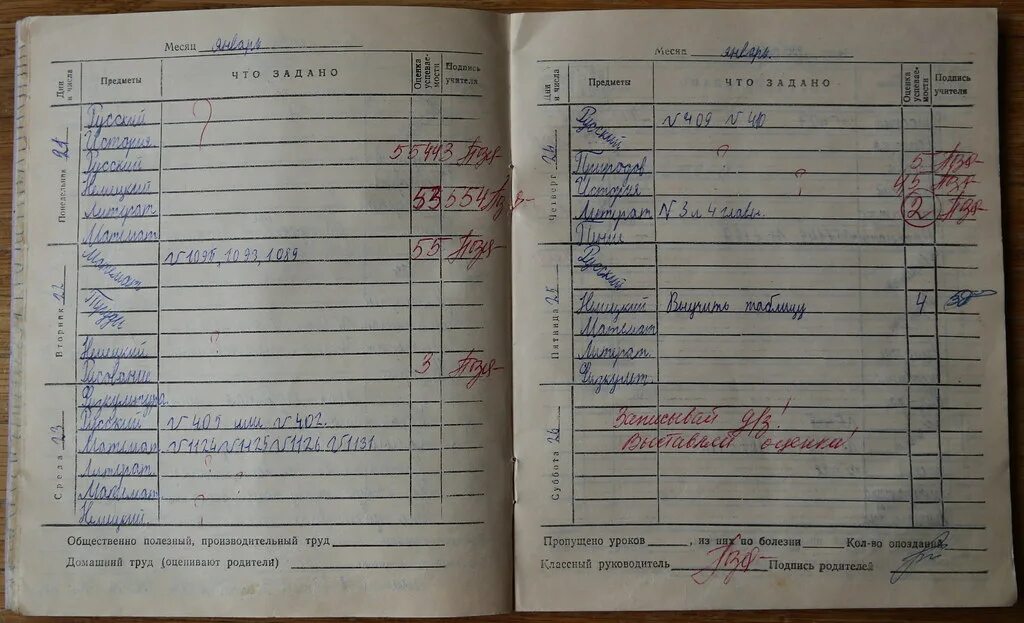 Месяц январь
Дни и числа Предметы ЧТО ЗАДАНО Оценка успеваемости Подпись учителя
Понедельник 21
Русский ?
История
Русский 5 5 4 4 3
Немецкий
Литерат. 5 3 5 5 4
Математ
Вторник 22
Математ N 1095, 1093, 1089 5 5
Труды
Немецкий ?
Рисование 3
Среда 23
Физкультура
Русский N 409 или N 402.
Математ N 1124 N 1125 N 1126 N 1131
Литерат. ?
Математ ?
Немецкий. ?
Общественно полезный, производительный труд
Домашний труд (оценивают родители)
Месяц январь.
Дни и числа Предметы ЧТО ЗАДАНО Оценка успеваемости Подпись учителя
Четверг 24
Русский N 409 N 410
Природов ? 5
История ? 4 5
Литерат N 3 и 4 главы. 2
Пение
Пятница 25
Русский
Немецкий Выучить таблицу 4
Математ
Литерат.
Физкульт.
Суббота 26
Записывай д/з!
Выставляй оценки!
Пропущено уроков , из них по болезни Кол-во опозданий
Классный руководитель Подпись родителей